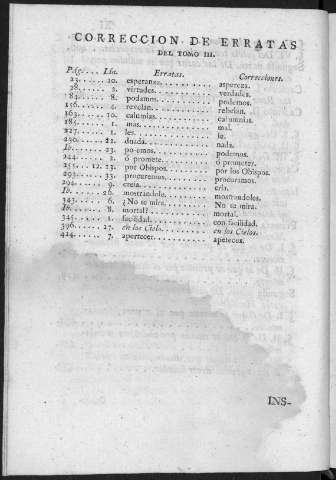 CORRECCION DE ERRATAS
DEL TOMO III.
Pág. Lín. Erratas. Correcciones.
23. 20. esperanza. aspereza.
28. 2. virtudes. verdades.
84. 8. podamos. podemos.
156. 4. revelan. rebelan.
163. 10. calumias. calumnias.
185. 1. mas. mal.
227. 1. les. le.
230. 22. duada. nada.
Ib. 23. po emos. podemos.
244. 2. ó promete. ó prometer.
255. 12. por Obispos. por los Obispos.
293. 33. procuremos. procuramos.
294. 9. creia. cria.
Ib. 26. mostrándole. mostrándoles.
343. 6. ¿No se mira. No se mira.
Ib. 8. mortal? mortal.
345. 1. facilidad. con facilidad.
396. 17. en los Cielo. en los Cielos.
424. 7. apertecer. apetecer.
INS-